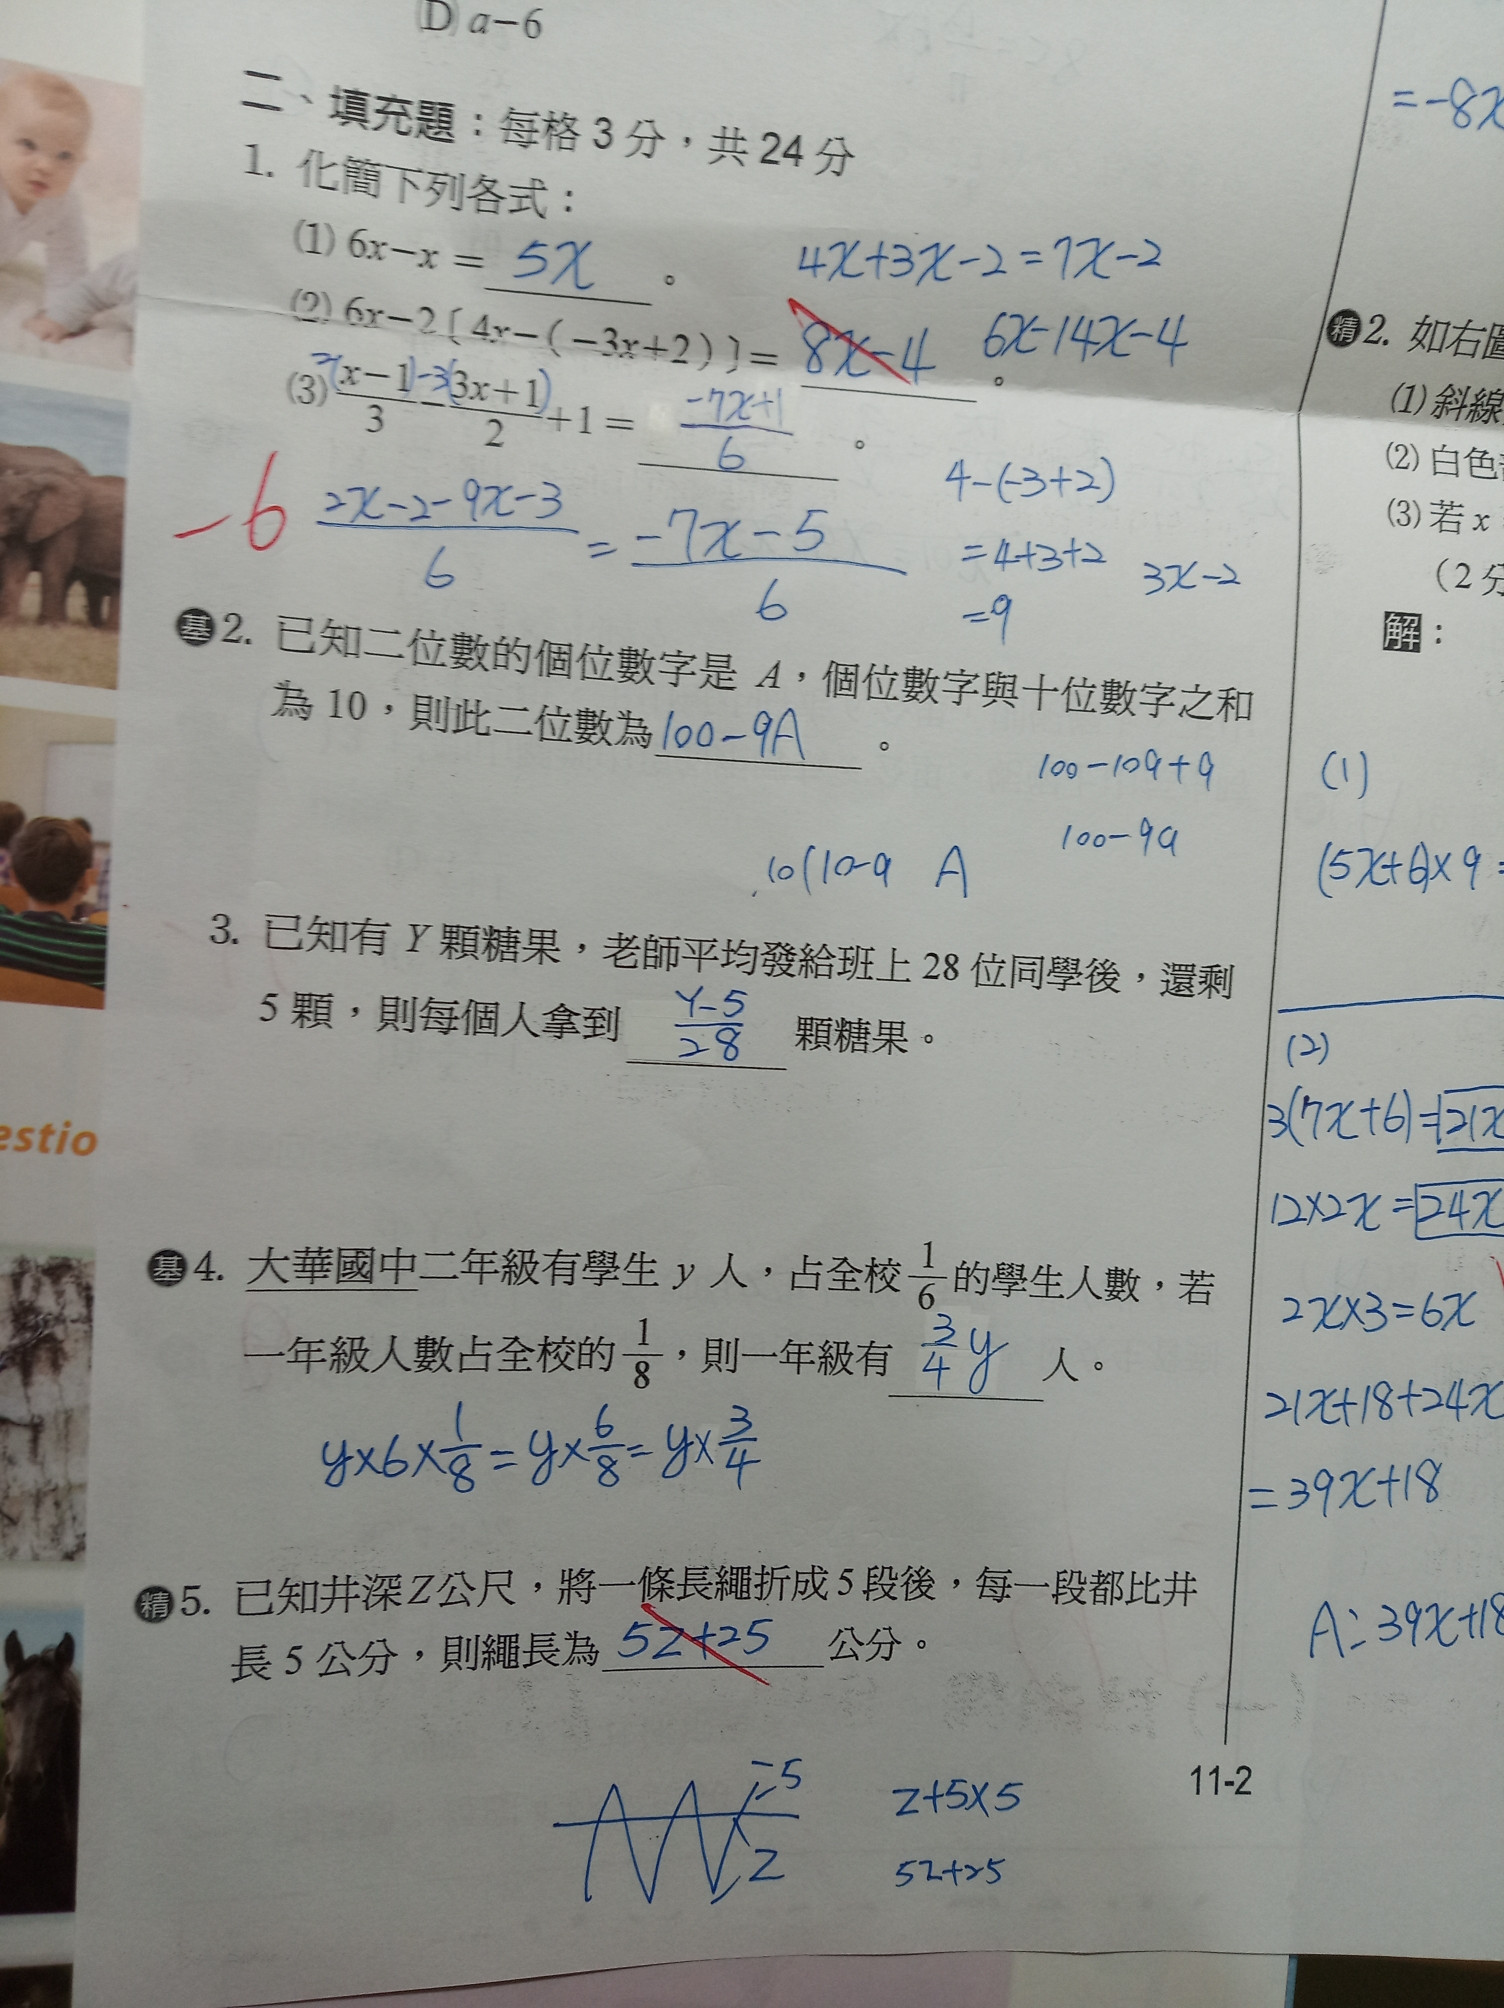 (D) a−6
二、填充題：每格 3 分，共 24 分
1. 化簡下列各式：
(1) 6x−x = 5x 。
4x+3x-2=7x-2
(2) 6x−2〔4x−(−3x+2)〕= 8x-4 。
6x-14x-4
(3) 2(x−1)-3(3x+1)
x−1/3 − 3x+1/2 +1 = -7x+1/6 。
-6
2x-2-9x-3/6 = -7x-5/6
4-(-3+2)
=4+3+2
=9
3x-2
基 2. 已知二位數的個位數字是 A，個位數字與十位數字之和
為 10，則此二位數為 100-9A 。
100-10a+a
100-9a
10(10-a A
3. 已知有 Y 顆糖果，老師平均發給班上 28 位同學後，還剩
5 顆，則每個人拿到 Y-5/28 顆糖果。
基 4. 大華國中二年級有學生 y 人，占全校 1/6 的學生人數，若
一年級人數占全校的 1/8，則一年級有 3/4 y 人。
y×6×1/8=y×6/8=y×3/4
精 5. 已知井深Z公尺，將一條長繩折成 5 段後，每一段都比井
長 5 公分，則繩長為 5Z+25 公分。
5
Z
Z+5×5
5Z+25
11-2
=-8x
精 2. 如右圖
(1) 斜線
(2) 白色
(3) 若 x
（2 分
解：
(1)
(5x+6)×9=
(2)
3(7x+6)=21x
12×2x=24x
2x×3=6x
21x+18+24x
=39x+18
A: 39x+18
estio